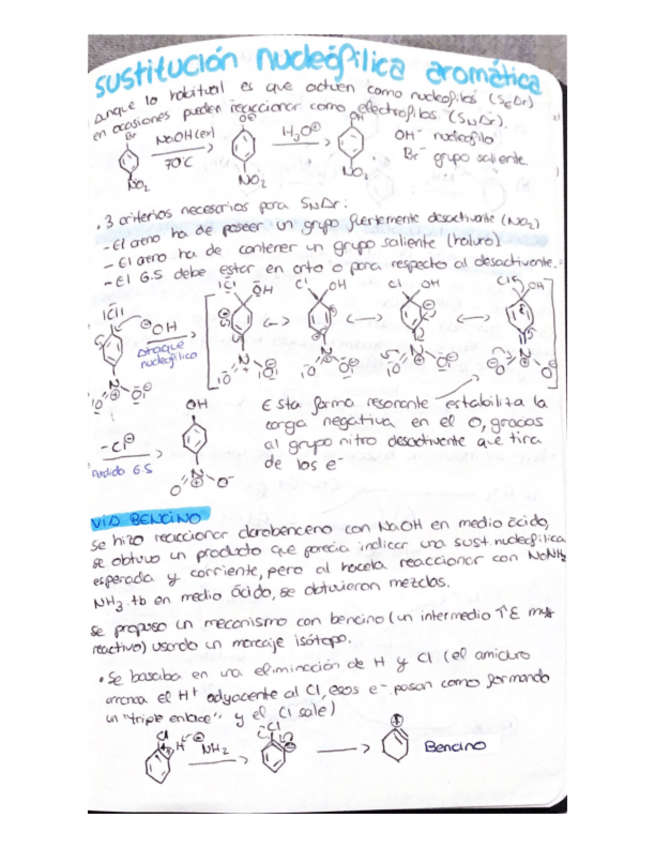 sustitución nucleófilica aromática
Anque lo habitual es que actúen como nucleofilos (SEAr)
en ocasiones pueden reaccionar como electrofilos (SNAr).
Br NaOH (ex) 70°C NO2 O⊖ NO2 H3O⊕ OH NO2
OH⁻ nucleofilo
Br⁻ grupo saliente
· 3 criterios necesarios para SNAr:
- El areno ha de poseer un grupo fuertemente desactivante (NO2)
- El areno ha de contener un grupo saliente (haluro).
- El G.S debe estar en orto o para respecto al desactivante.
⊖OH
ataque
nucleofílico
Cl OH Cl OH Cl OH
Esta forma resonante estabiliza la
carga negativa en el O, gracias
al grupo nitro desactivante que tira
de los e⁻
-Cl⊖
Perdido G.S
OH
VIA BENCINO
se hizo reaccionar clorobenceno con NaOH en medio ácido,
se obtuvo un producto que parecía indicar una sust. nucleofílica
esperada y corriente, pero al hacerla reaccionar con NaNH2
NH3 tb en medio ácido, se obtuvieron mezclas.
se propuso un mecanismo con bencino (un intermedio ↑E muy
reactivo) usando un marcaje isótopo.
· Se basaba en una eliminación de H y Cl (el amiduro
arranca el H⁺ adyacente al Cl, esos e⁻ pasan como formando
un "triple enlace" y el Cl sale)
Cl H ⊖NH2 Cl Bencino